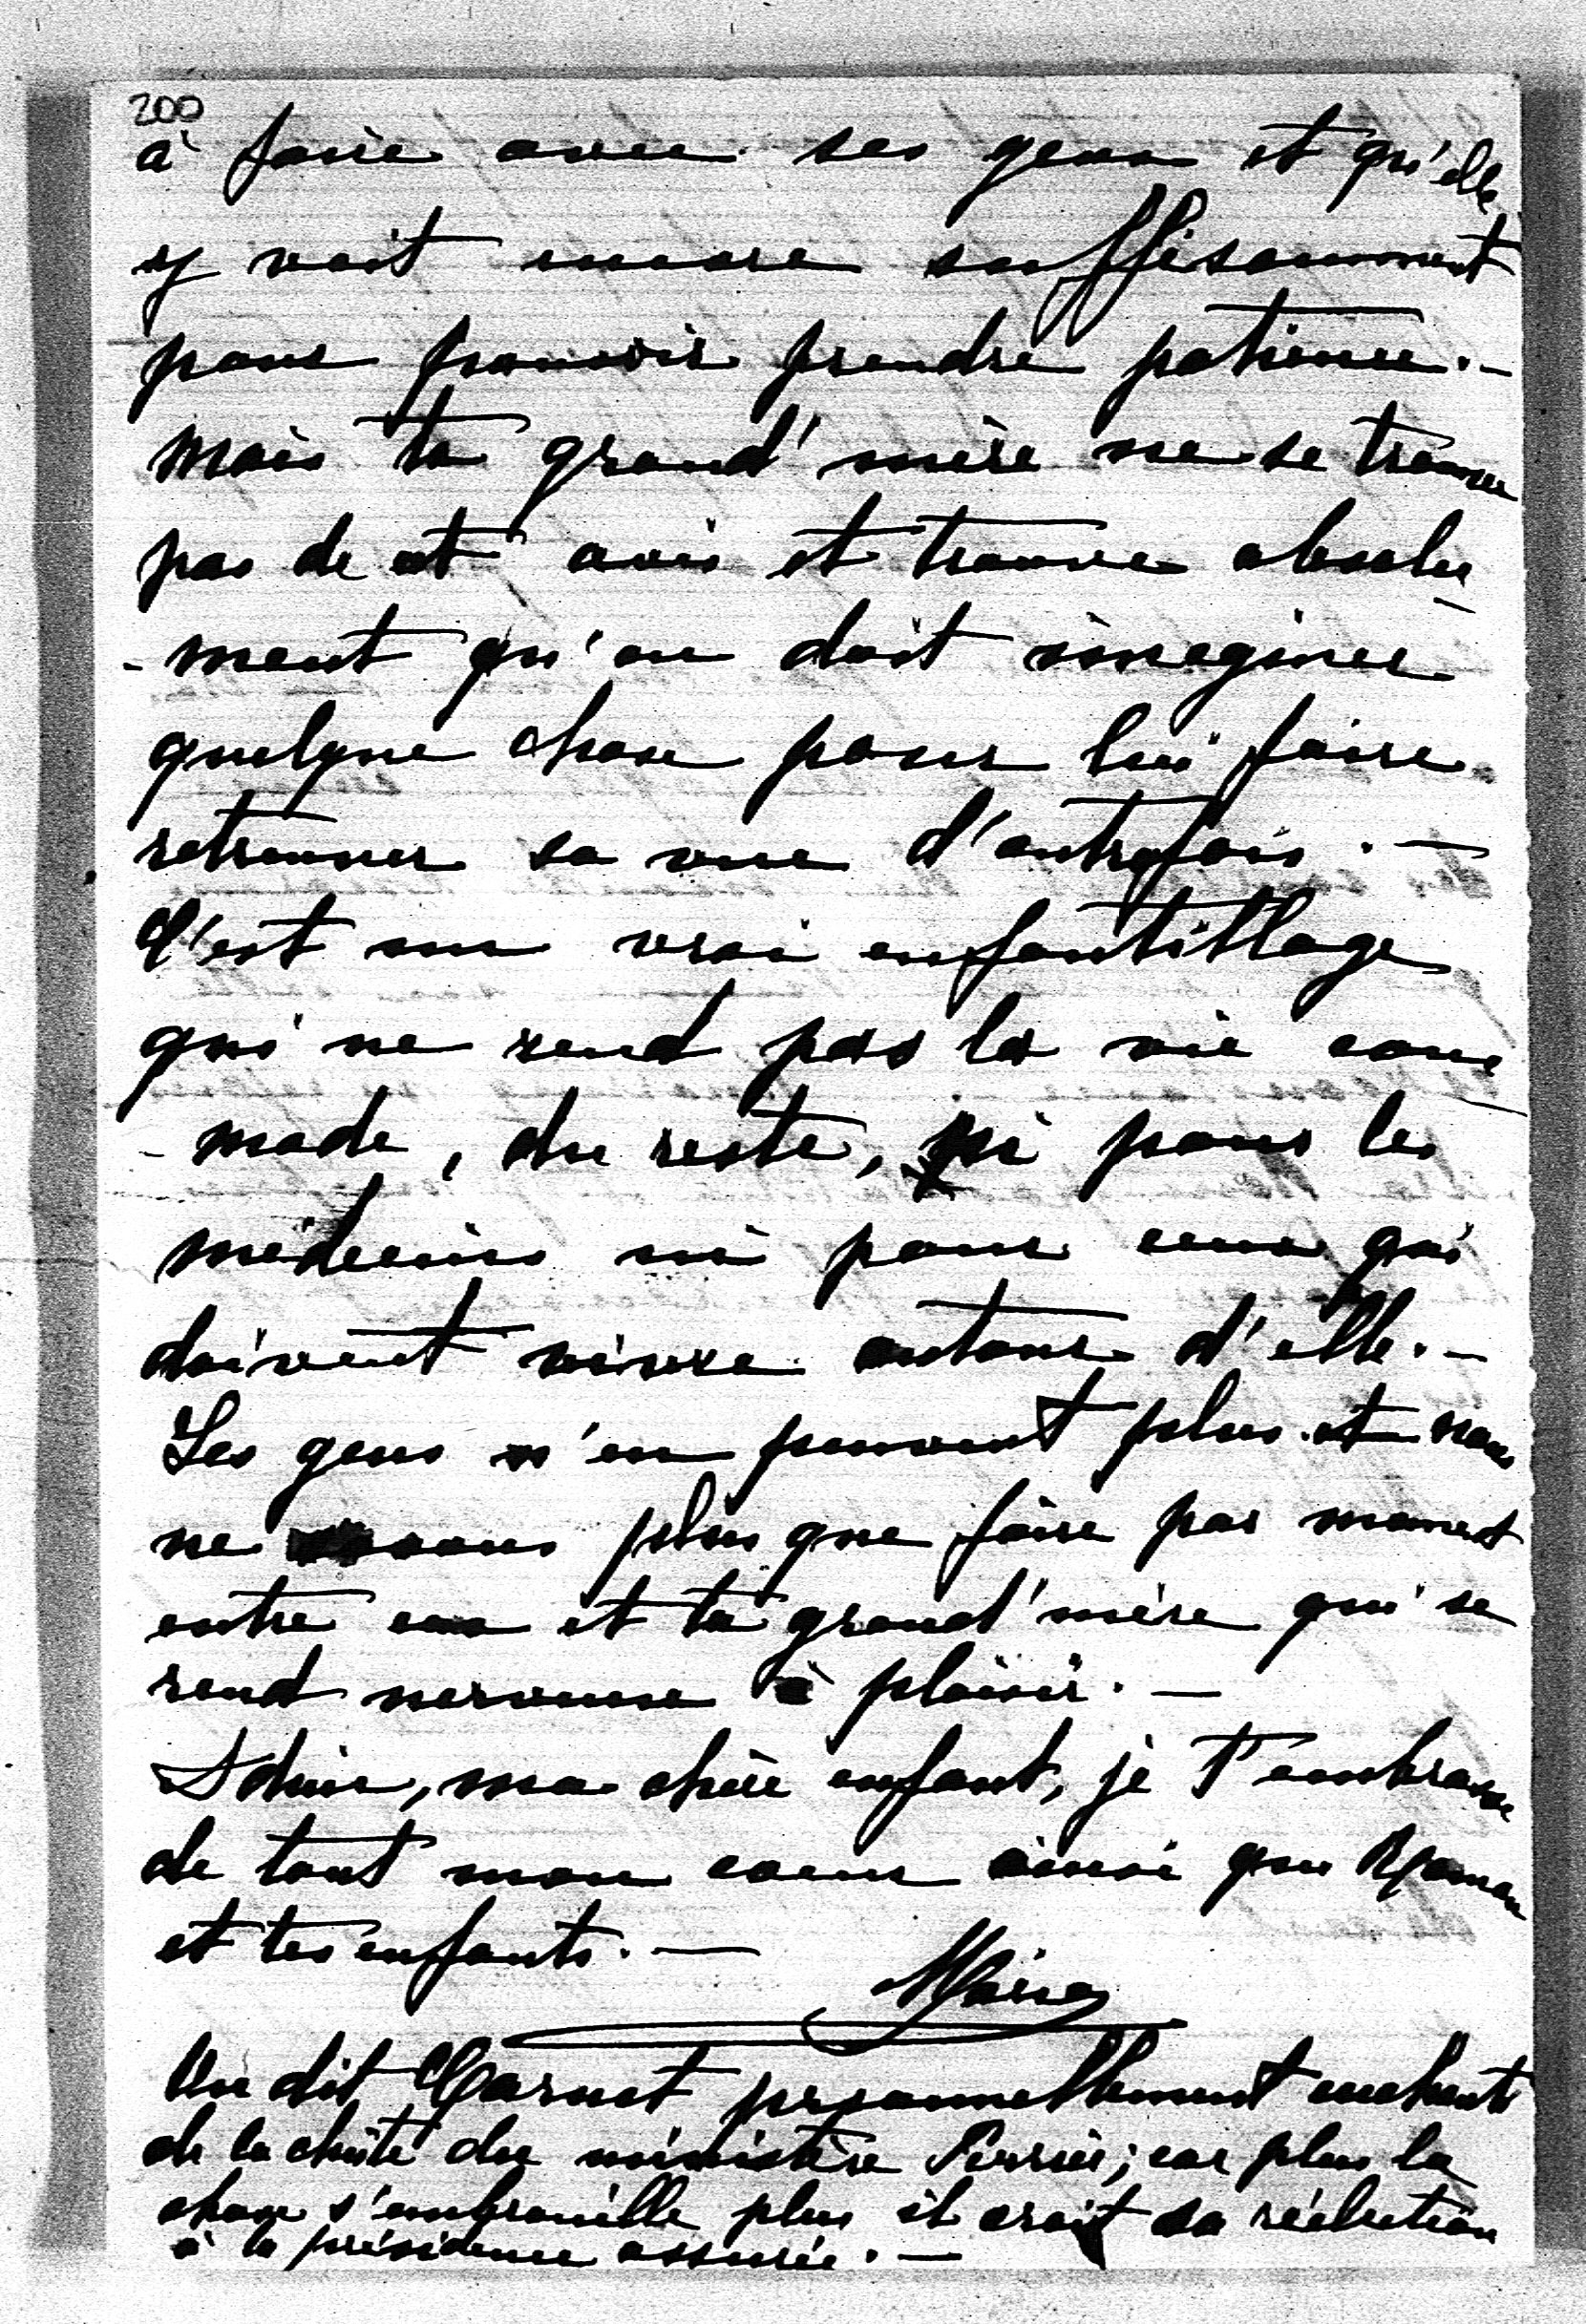 200
à faire avec ses yeux et qu'elle
y voit encore suffisamment
pour pouvoir prendre patience. —
Mais ta grand'mère ne se trouve
pas de cet avis et trouve absolu
- ment qu'on doit imaginer
quelque chose pour lui faire
retrouver sa vue d'autrefois. —
C'est un vrai enfantillage
qui ne rend pas la vie com
- mode, du reste, ni pour les
médecins ni pour ceux qui
doivent vivre autour d'elle. —
Les gens n'en peuvent plus et nous
ne savons plus que faire par moment
entre eux et ta grand'mère qui se
rend nerveuse à plaisir. —
Adieu, ma chère enfant, je t'embrasse
de tout mon coeur ainsi que Roman
et tes enfants. —
Marie
On dit Carnot personnellement enchanté
de la chûte du ministère Perrier; car plus la
chose s'embrouille plus il croit sa réélection
à la présidence assurée. —